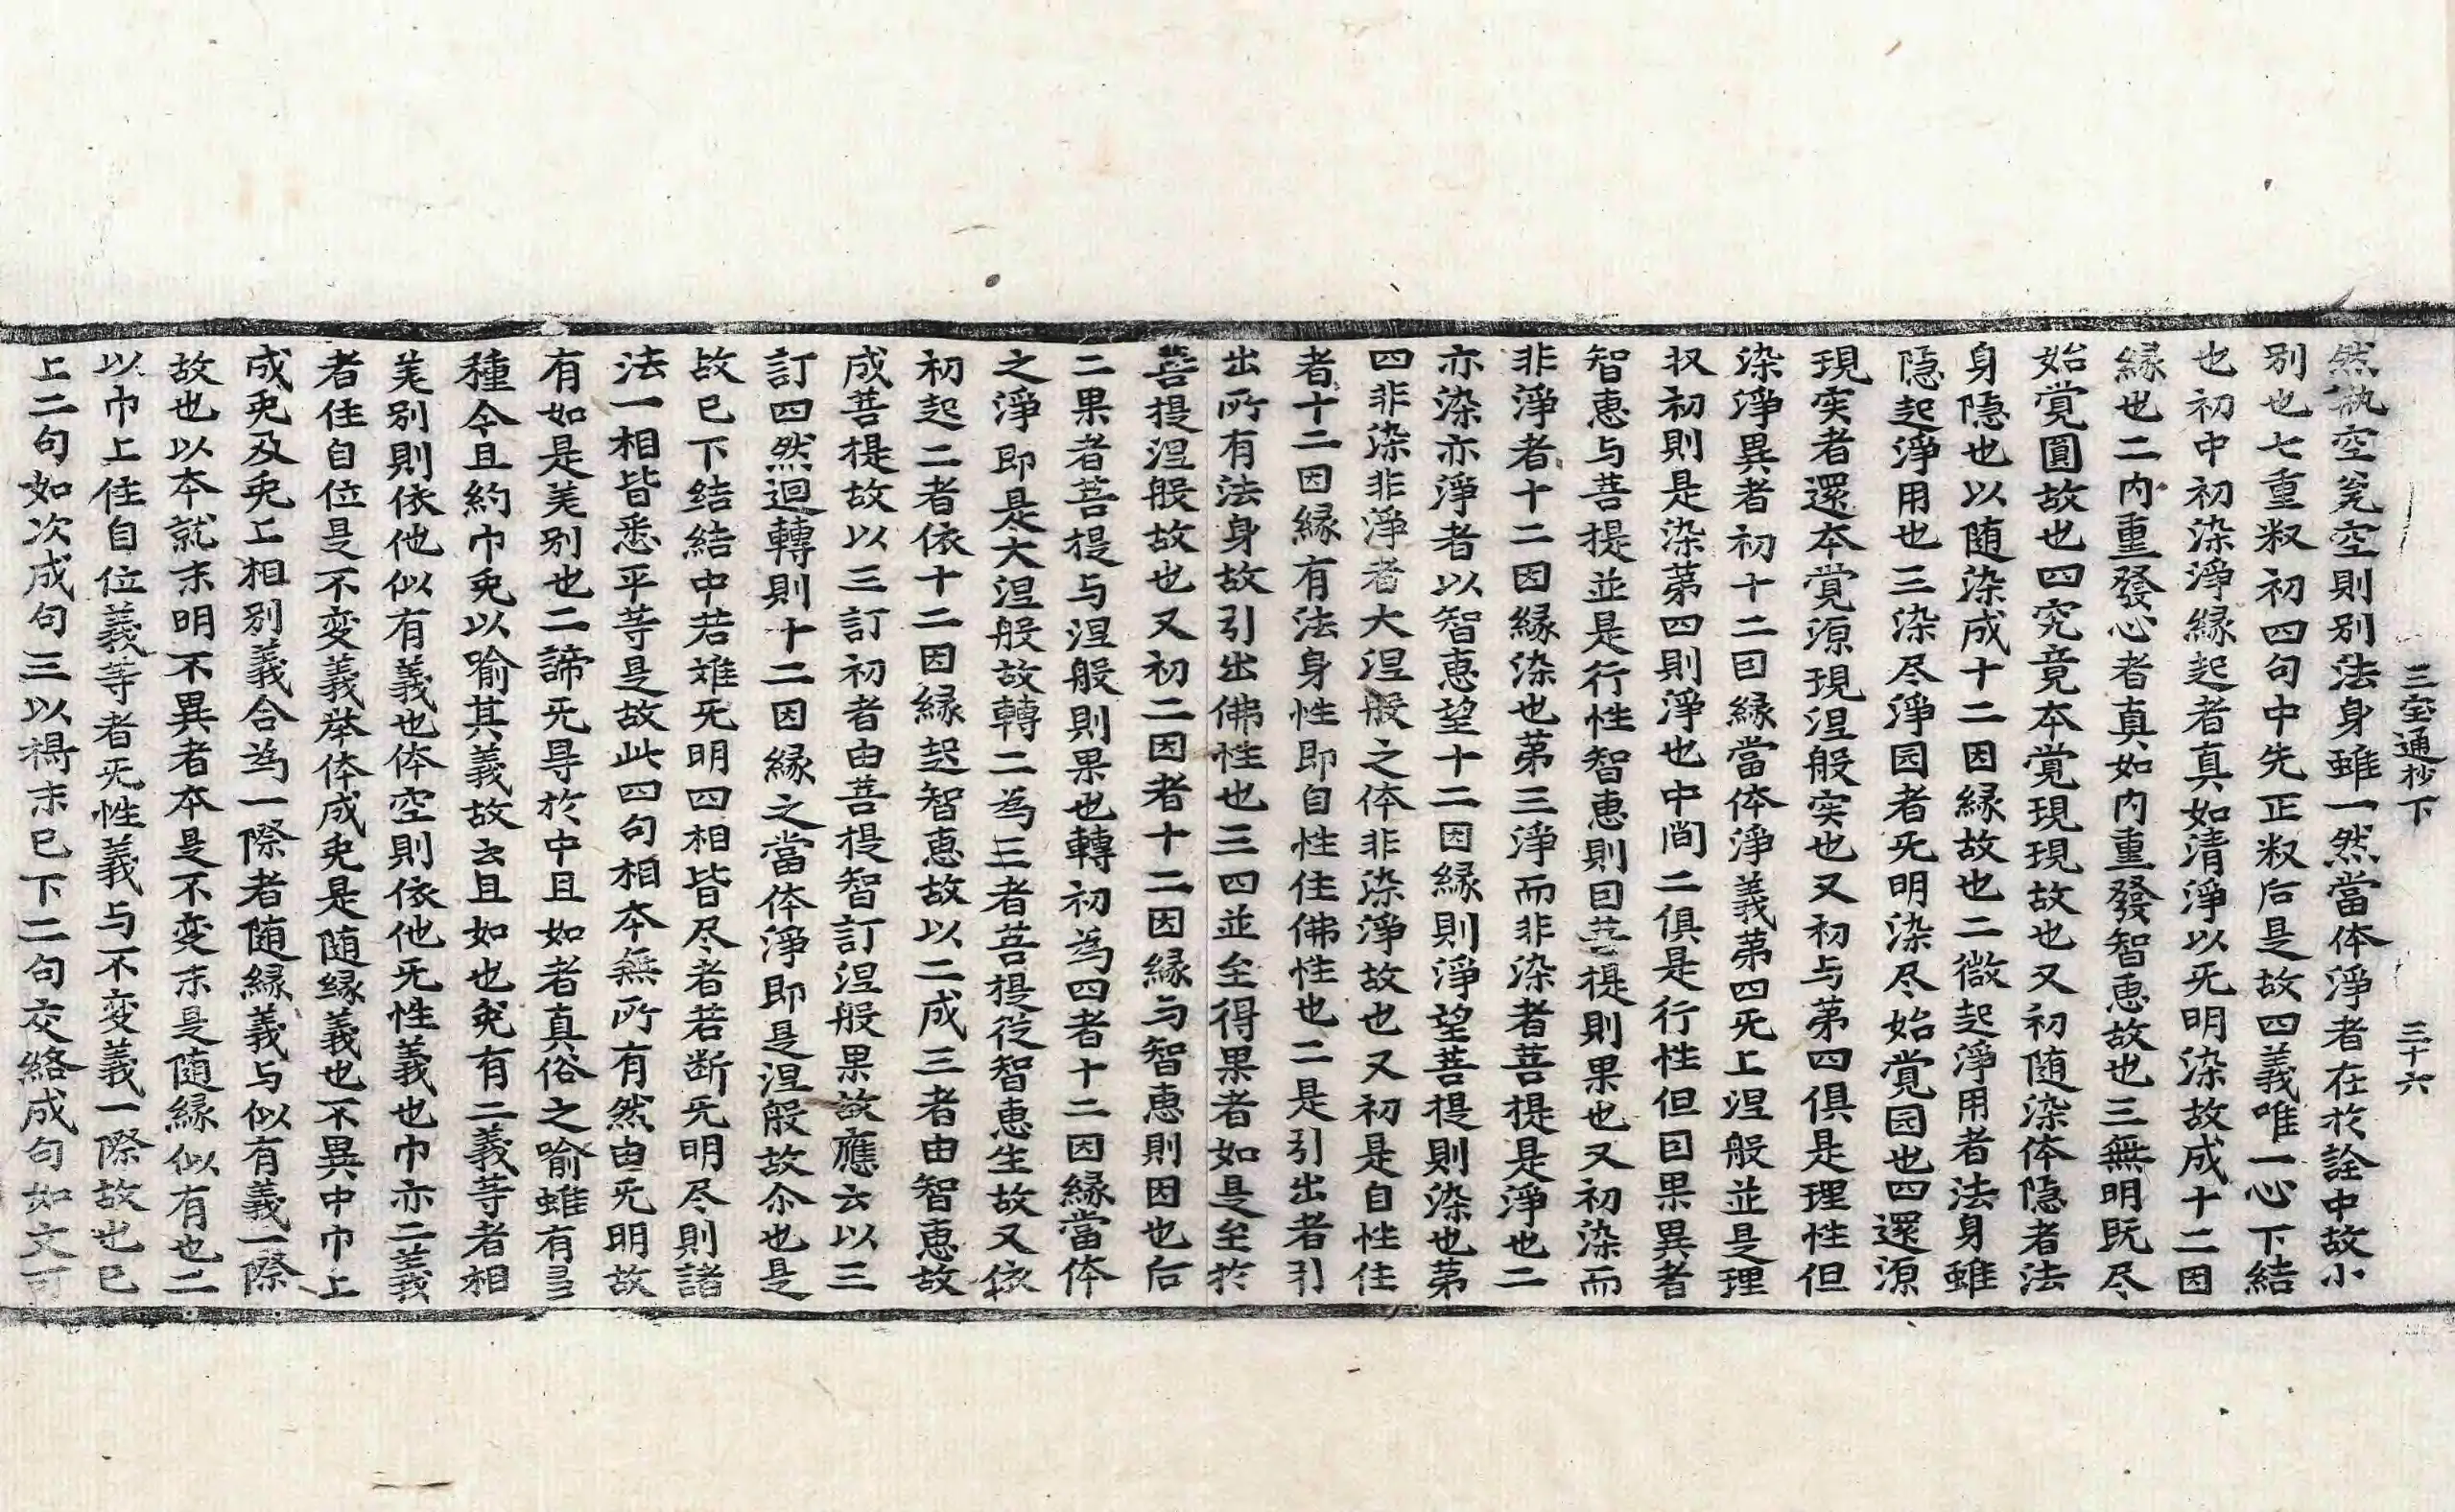 三宝通抄下 三十六
然執空冤空則别法身雖一然當体淨者在於詮中故小
别也七重叙初四句中先正叙后是故四義唯一心下結
也初中初染淨縁起者真如清淨以无明染故成十二因
縁也二内重發心者真如内重發智恵故也三無明既尽
始覺圓故也四究竟本覺現現故也又初随染体隠者法
身隠也以随染成十二因縁故也二微起淨用者法身雖
隠起淨用也三染尽淨园者无明染尽始覺园也四還源
現実者還本覺源現涅般実也又初与苐四俱是理性但
染淨異者初十二囙縁當体淨義苐四无上涅般並是理
収初則是染苐四則淨也中間二俱是行性但囙果異者
智恵与菩提並是行性智恵則囙菩提則果也又初染而
非淨者十二因縁染也苐三淨而非染者菩提是淨也二
亦染亦淨者以智恵望十二因縁則淨望菩提則染也苐
四非染非淨者大涅般之体非染淨故也又初是自性住
者十二因縁有法身性即自性住佛性也二是引出者引
出所有法身故引出佛性也三四並至得果者如是至於
菩提涅般故也又初二因者十二因縁与智恵則因也后
二果者菩提与涅般則果也轉初為四者十二因縁當体
之淨即是大涅般故轉二為三者菩提從智恵生故又依
初起二者依十二因縁起智恵故以二成三者由智恵故
成菩提故以三訂初者由菩提智訂涅般果故應云以三
訂四然迴轉則十二因縁之當体淨即是涅般故尒也是
故已下结結中若難无明四相皆尽者若断无明尽則諸
法一相皆悉平䓁是故此四句相本無所有然由无明故
有如是差别也二諦无㝵於中且如者真俗之喻雖有多
種今且約巾兎以喻其義故云且如也兎有二義等者相
差别則依他似有義也体空則依他无性義也巾亦二義
者住自位是不变義举体成兎是随縁義也不異中巾上
成兎及兎上相别義合為一際者随縁義与似有義一際
故也以本就末明不異者本是不变末是随縁似有也二
以巾上住自位義等者无性義与不变義一際故也已
上二句如次成句三以㩀末已下二句交絡成句如文可